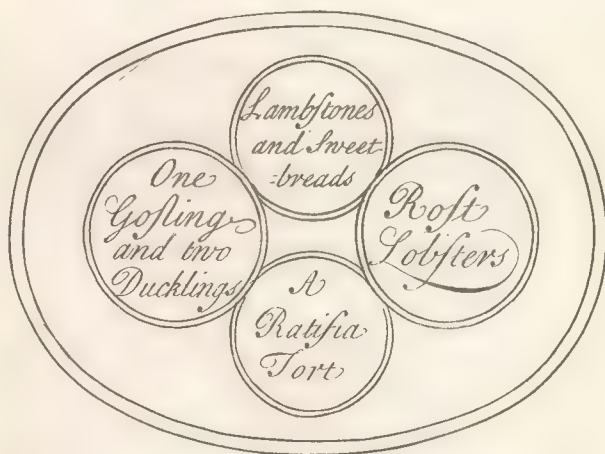 Lambſtones
and Sweet-
-breads
One
Goſling
and two
Ducklings
Roſt
Lobſters
A
Ratifia
Tort